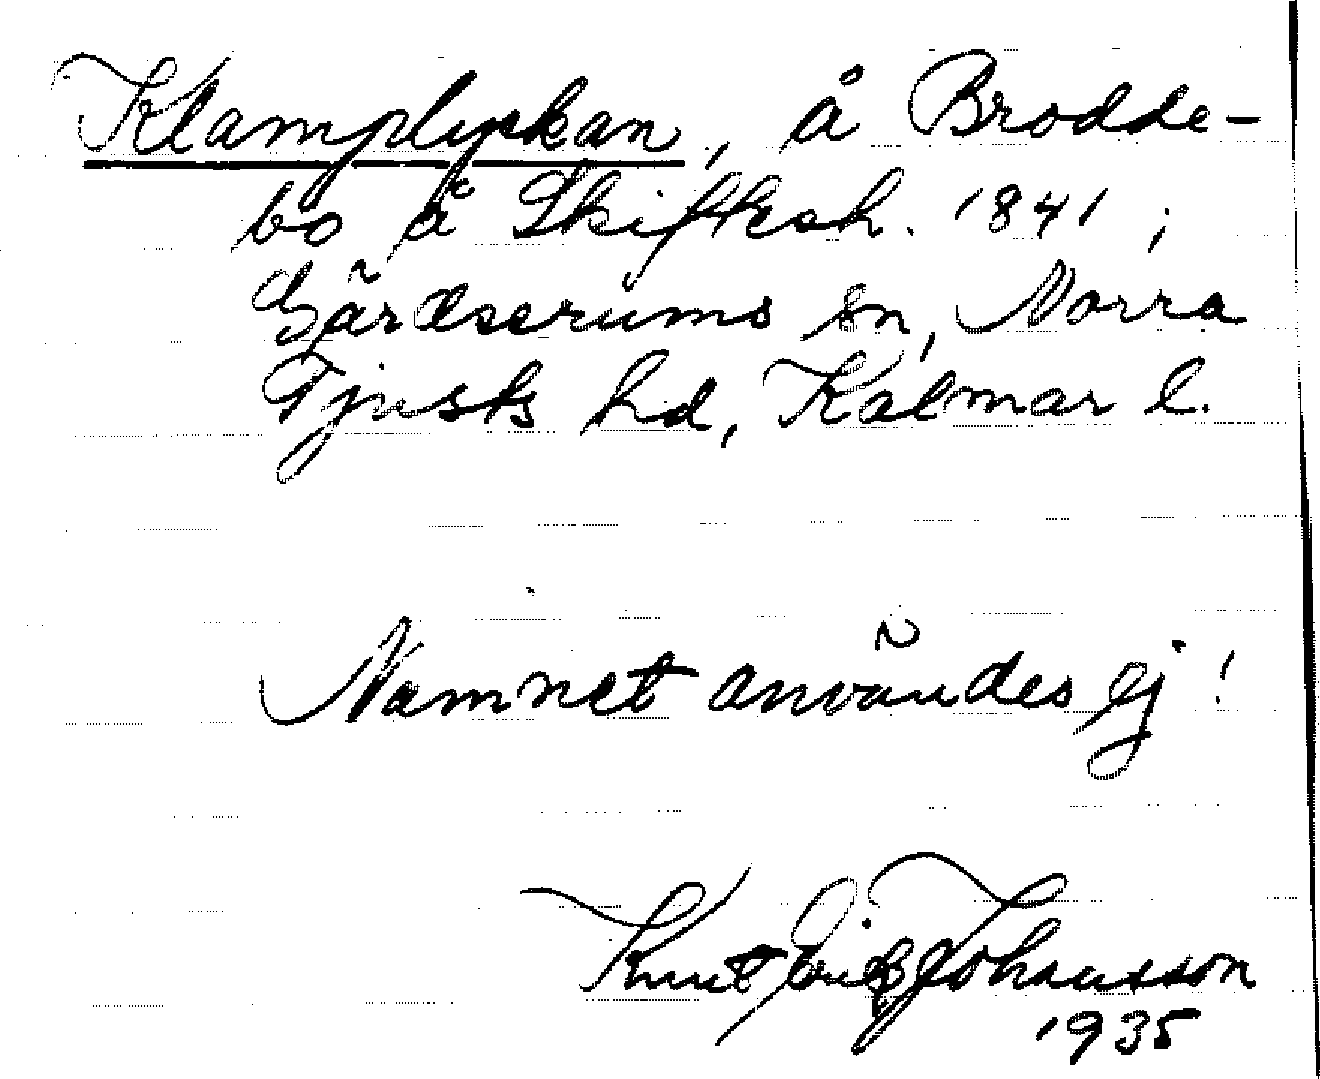 Klamplyckan, å Brodde-
bo å Skiftesh. 1841;
Gärdserums sn, Norra
Tjusts hd, Kalmar l.
Namnet användes ej!
Knut Erik Johansson
1935